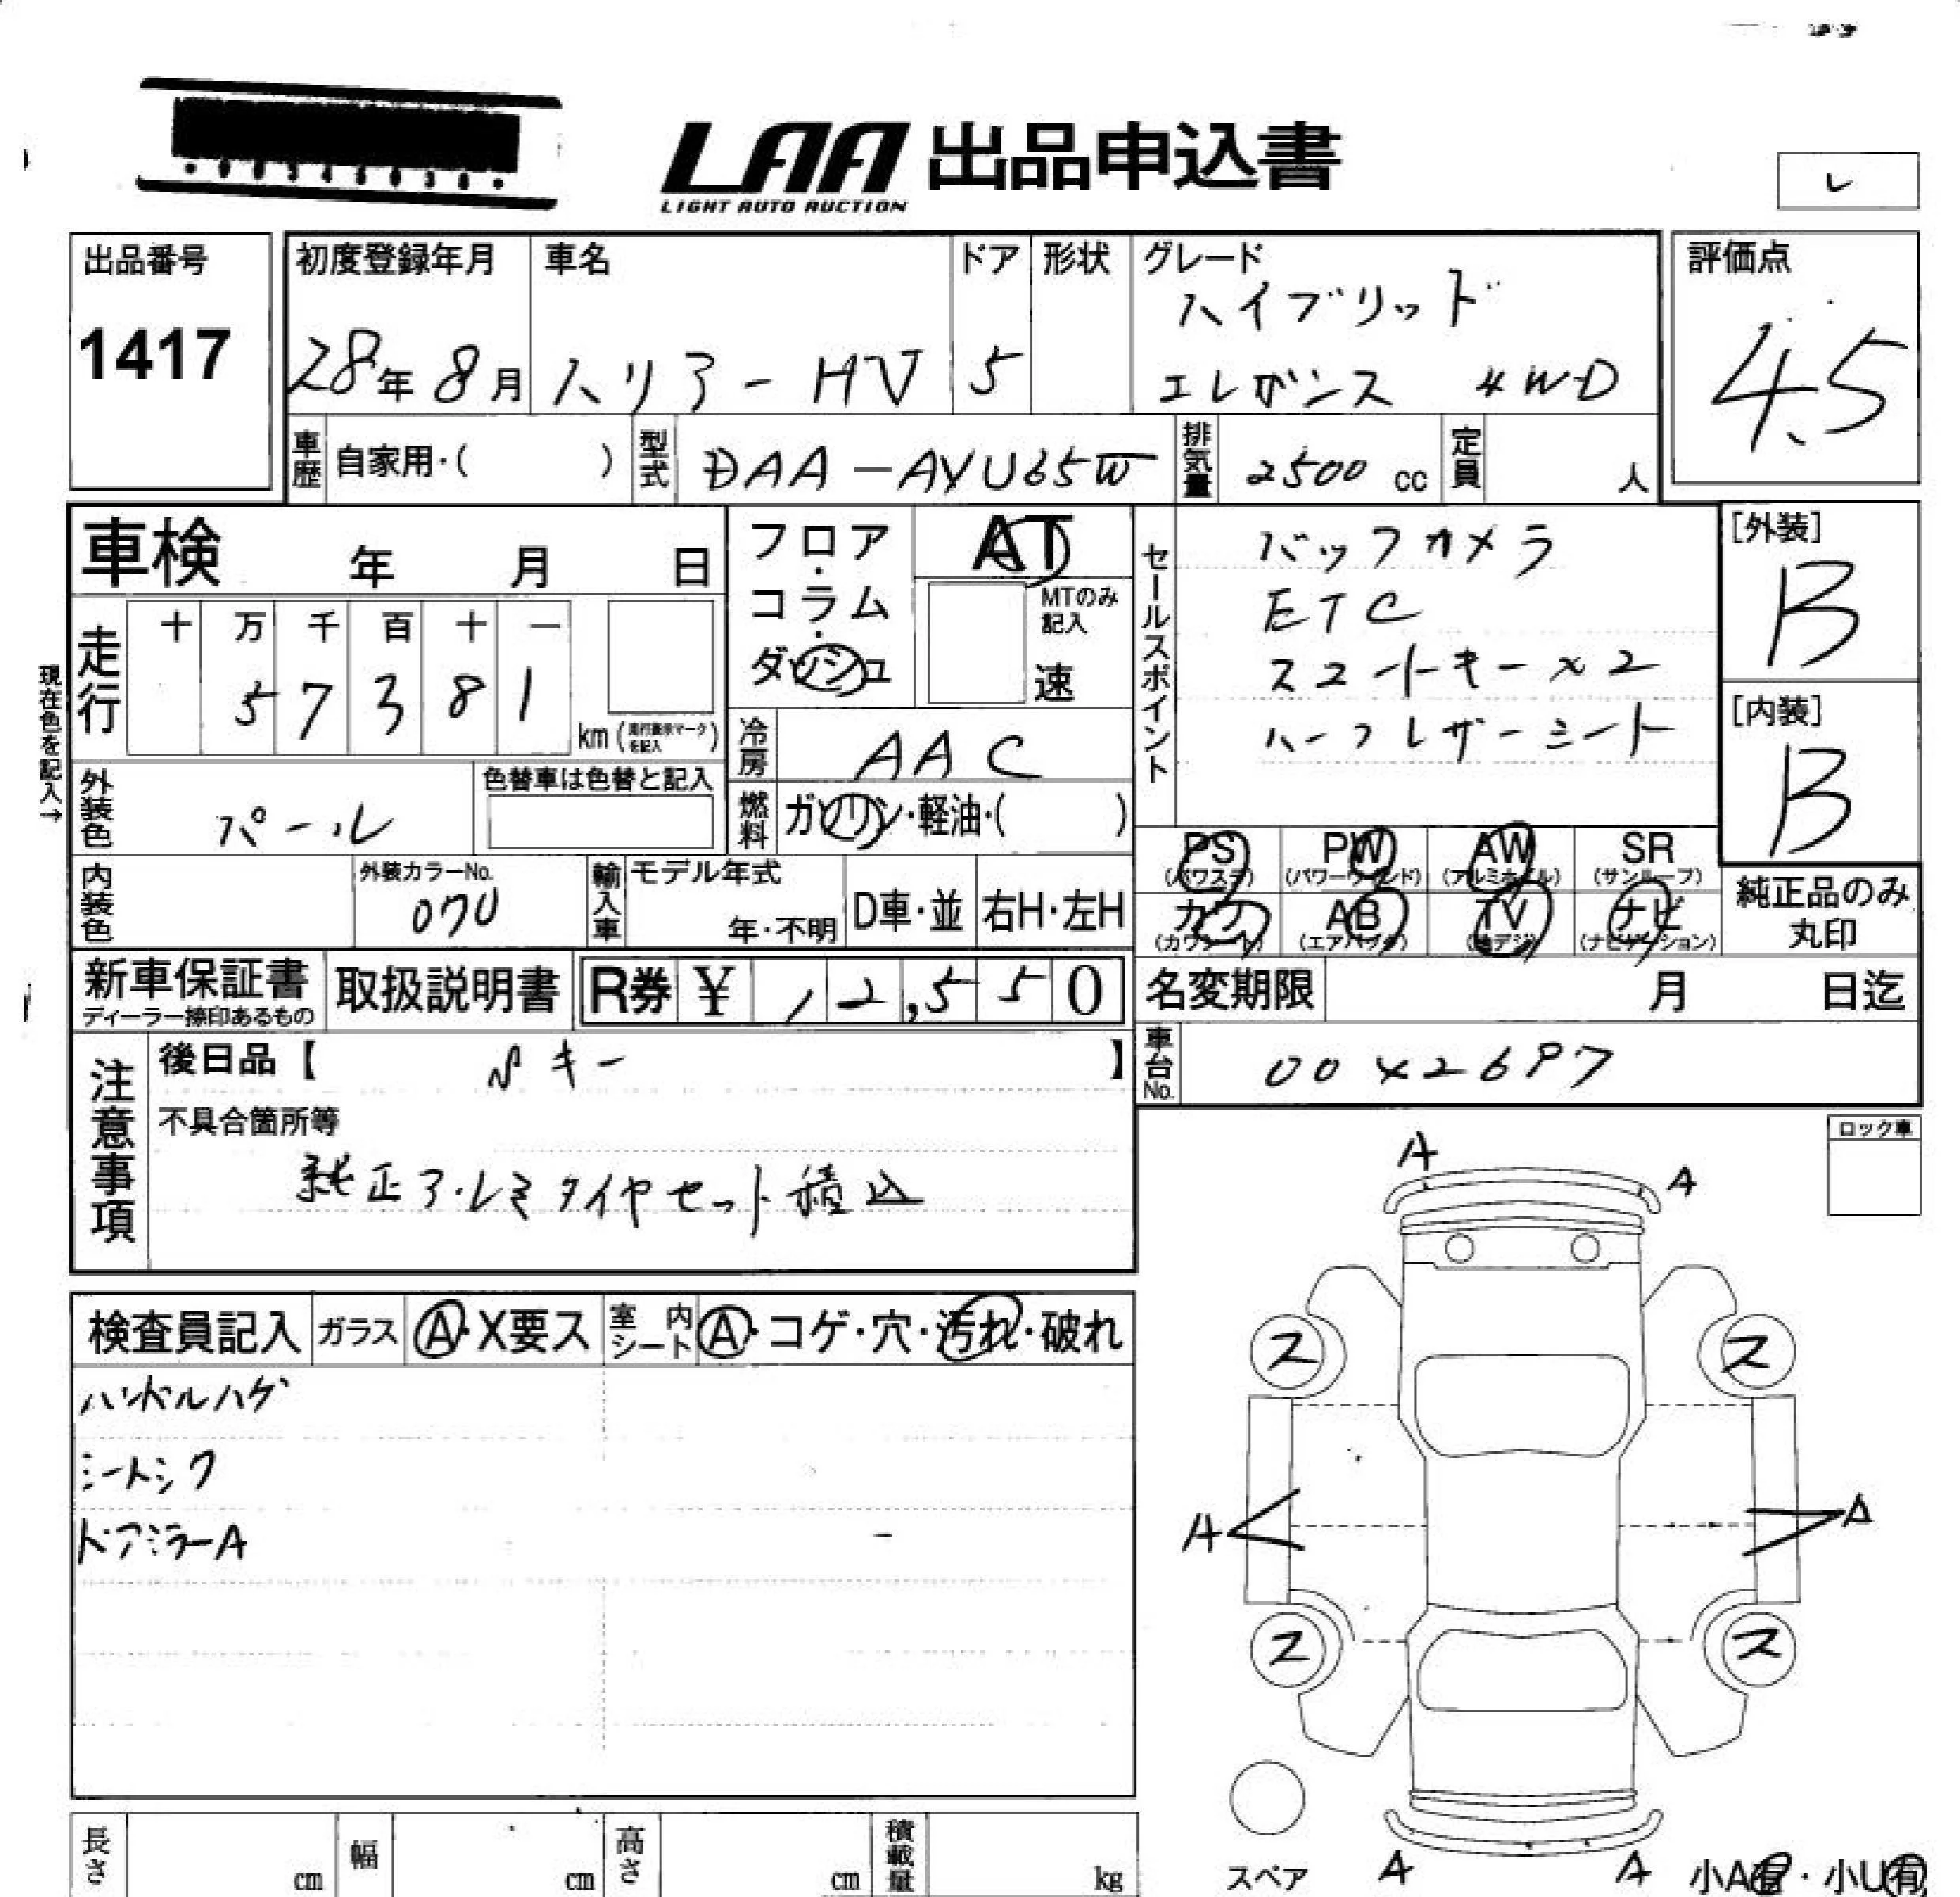 LAA 出品申込書
LIGHT AUTO AUCTION
レ
出品番号
1417
初度登録年月
28年 8月
車名
ハリアー HV
ドア
5
形状
グレード
ハイブリッド
エレガンス 4WD
評価点
4.5
車歴 自家用・( )
型式 DAA-AVU65W
排気量 2500 cc
定員 人
車検 年 月 日
走行
十 万 千 百 十 一
5 7 3 8 1
km (走行表示マークを記入)
現在色を記入→
フロア・コラム・ダッシュ
AT
MTのみ記入
速
冷房 AAC
燃料 ガソリン・軽油・( )
セールスポイント
バックカメラ
ETC
スマートキー×2
ハーフレザーシート
[外装]
B
[内装]
B
外装色 パール
色替車は色替と記入
内装色
外装カラーNo.
070
輸入車
モデル年式
年・不明
D車・並
右H・左H
PS
(パワステ)
PW
(パワーウィンド)
AW
(アルミホイル)
SR
(サンルーフ)
カワ
(カワシート)
AB
(エアバック)
TV
(地デジ)
ナビ
(ナビゲーション)
純正品のみ
丸印
新車保証書
ディーラー捺印あるもの
取扱説明書
R券 ¥ 12,550
名変期限 月 日迄
車台No. 0042697
注意事項
後日品【 キー 】
不具合箇所等
純正アルミタイヤセット積込
ロック車
検査員記入
ガラス A・X要ス
室内シート A・コゲ・穴・汚れ・破れ
ハンドルハゲ
シートシワ
ドアミラーA
A A
ス ス
A A
ス ス
A A
スペア
小A有・小U有
長さ cm
幅 cm
高さ cm
積載量 kg